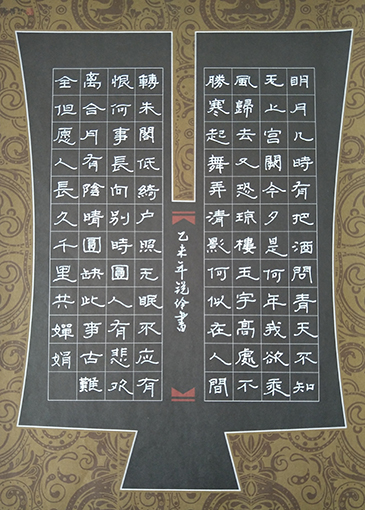 明月几時有把酒問青天不知
天上宫闕今夕是何年我欲乘
風歸去又恐琼樓玉宇高處不
勝寒起舞弄清影何似在人間
乙未年書
轉朱閣低綺户照无眠不應有
恨何事長向别時圓人有悲欢
离合月有陰晴圓缺此事古難
全但愿人長久千里共嬋娟